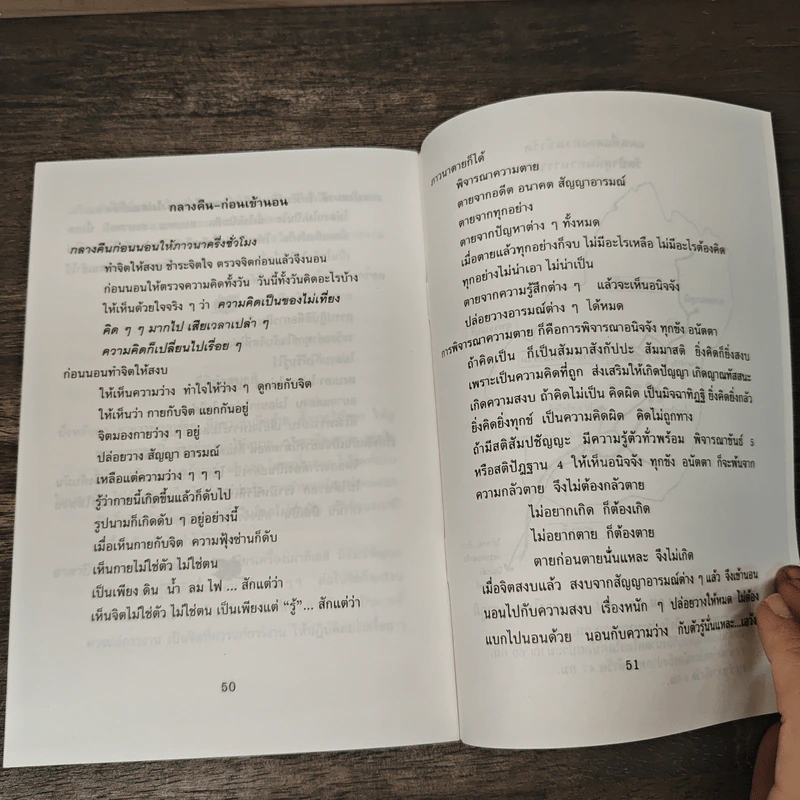 กลางคืน-ก่อนเข้านอน
กลางคืนก่อนนอนให้ภาวนาครึ่งชั่วโมง
ทำจิตให้สงบ ชำระจิตใจ ตรวจจิตก่อนแล้วจึงนอน
ก่อนนอนให้ตรวจความคิดทั้งวัน วันนี้ทั้งวันคิดอะไรบ้าง
ให้เห็นด้วยใจจริง ๆ ว่า ความคิดเป็นของไม่เที่ยง
คิด ๆ ๆ มากไป เสียเวลาเปล่า ๆ
ความคิดก็เปลี่ยนไปเรื่อย ๆ
ก่อนนอนทำจิตให้สงบ
ให้เห็นความว่าง ทำใจให้ว่าง ๆ ดูกายกับจิต
ให้เห็นว่า กายกับจิต แยกกันอยู่
จิตมองกายว่าง ๆ อยู่
ปล่อยวาง สัญญา อารมณ์
เหลือแต่ความว่าง ๆ ๆ ๆ
รู้ว่ากายนี้เกิดขึ้นแล้วก็ดับไป
รูปนามก็เกิดดับ ๆ อยู่อย่างนี้
เมื่อเห็นกายกับจิต ความฟุ้งซ่านก็ดับ
เห็นกายไม่ใช่ตัว ไม่ใช่ตน
เป็นเพียง ดิน น้ำ ลม ไฟ ... สักแต่ว่า
เห็นจิตไม่ใช่ตัว ไม่ใช่ตน เป็นเพียงแต่ “รู้”... สักแต่ว่า
50
ภาวนาตายก็ได้
พิจารณาความตาย
ตายจากอดีต อนาคต สัญญาอารมณ์
ตายจากทุกอย่าง
ตายจากปัญหาต่าง ๆ ทั้งหมด
เมื่อตายแล้วทุกอย่างก็จบ ไม่มีอะไรเหลือ ไม่มีอะไรต้องคิด
ทุกอย่างไม่น่าเอา ไม่น่าเป็น
ตายจากความรู้สึกต่าง ๆ แล้วจะเห็นอนิจจัง
ปล่อยวางอารมณ์ต่าง ๆ ได้หมด
การพิจารณาความตาย ก็คือการพิจารณาอนิจจัง ทุกขัง อนัตตา
ถ้าคิดเป็น ก็เป็นสัมมาสังกัปปะ สัมมาสติ ยิ่งคิดก็ยิ่งสงบ
เพราะเป็นความคิดที่ถูก ส่งเสริมให้เกิดปัญญา เกิดญาณทัสสนะ
เกิดความสงบ ถ้าคิดไม่เป็น คิดผิด เป็นมิจฉาทิฏฐิ ยิ่งคิดยิ่งกลัว
ยิ่งคิดยิ่งทุกข์ เป็นความคิดผิด คิดไม่ถูกทาง
ถ้ามีสติสัมปชัญญะ มีความรู้ตัวทั่วพร้อม พิจารณาขันธ์ 5
หรือสติปัฏฐาน 4 ให้เห็นอนิจจัง ทุกขัง อนัตตา ก็จะพ้นจาก
ความกลัวตาย จึงไม่ต้องกลัวตาย
ไม่อยากเกิด ก็ต้องเกิด
ไม่อยากตาย ก็ต้องตาย
ตายก่อนตายนั่นแหละ จึงไม่เกิด
เมื่อจิตสงบแล้ว สงบจากสัญญาอารมณ์ต่าง ๆ แล้ว จึงเข้านอน
นอนไปกับความสงบ เรื่องหนัก ๆ ปล่อยวางให้หมด ไม่ต้อง
แบกไปนอนด้วย นอนกับความว่าง กับตัวรู้นั่นแหละ...เอวัง
51